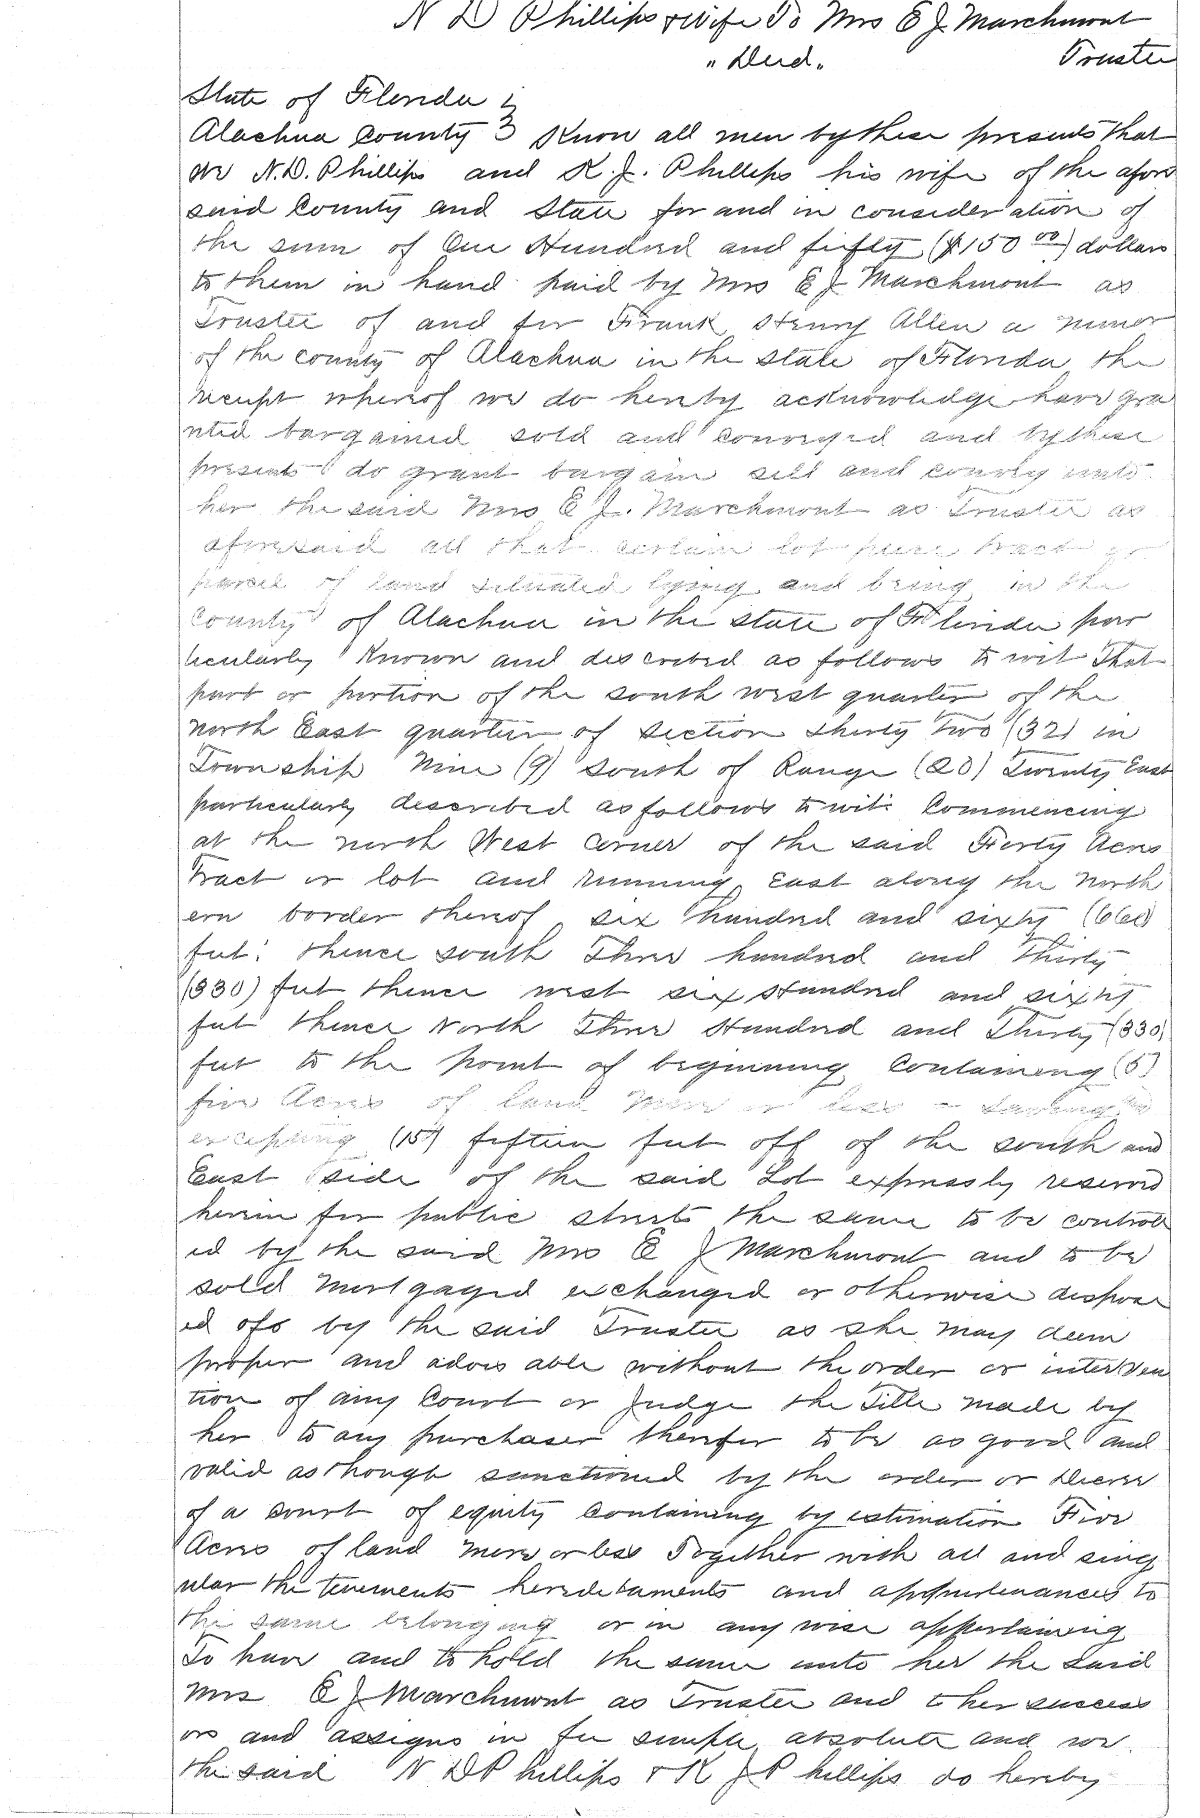 N D Phillips & Wife To Mrs E J Marchmont
"Deed" Trustee
State of Florida }
Alachua County } Know all men by these presents that
we N.D. Phillips and K.J. Phillips his wife of the afore
said County and State for and in consideration of
the sum of One Hundred and fifty ($150 00) dollars
to them in hand paid by Mrs E J Marchmont as
Trustee of and for Frank Henry Allen a minor
of the county of Alachua in the state of Florida the
receipt whereof we do hereby acknowledge have gra
nted bargained sold and conveyed and by these
presents do grant bargain sell and convey unto
her the said Mrs E J. Marchmont as Trustee as
aforesaid all that certain lot piece tract or
parcel of land situated lying and being in the
County of Alachua in the state of Florida par
ticularly known and described as follows to wit That
part or portion of the south west quarter of the
north East quarter of section thirty Two (32) in
Township Nine (9) South of Range (20) Twenty East
particularly described as follows to wit: Commencing
at the north West corner of the said Forty Acres
Tract or lot and running East along the north
ern border thereof six hundred and sixty (660)
feet: thence south Three hundred and Thirty
(330) feet thence west six Hundred and sixty
feet thence North Three Hundred and Thirty (330)
feet to the point of beginning containing (5)
five Acres of land more or less - saving &
excepting (15) fifteen feet off of the south and
East side of the said Lot expressly reserved
herein for public streets the same to be controll
ed by the said Mrs E J Marchmont and to be
sold mortgaged exchanged or otherwise dispose
ed off by the said Trustee as she may deem
proper and advis able without the order or interven
tion of any Court or Judge the Title made by
her to any purchaser therefor to be as good and
valid as though sanctioned by the order or Decree
of a court of equity containing by estimation Five
Acres of land more or less Together with all and sing
ular the tenements heredetaments and appurtenances to
the same belonging or in any wise appertaining
To have and to hold the same unto her the said
Mrs E J Marchmont as Trustee and to her success
ors and assigns in fee simple absolute and we
the said N D Phillips & K J Phillips do hereby